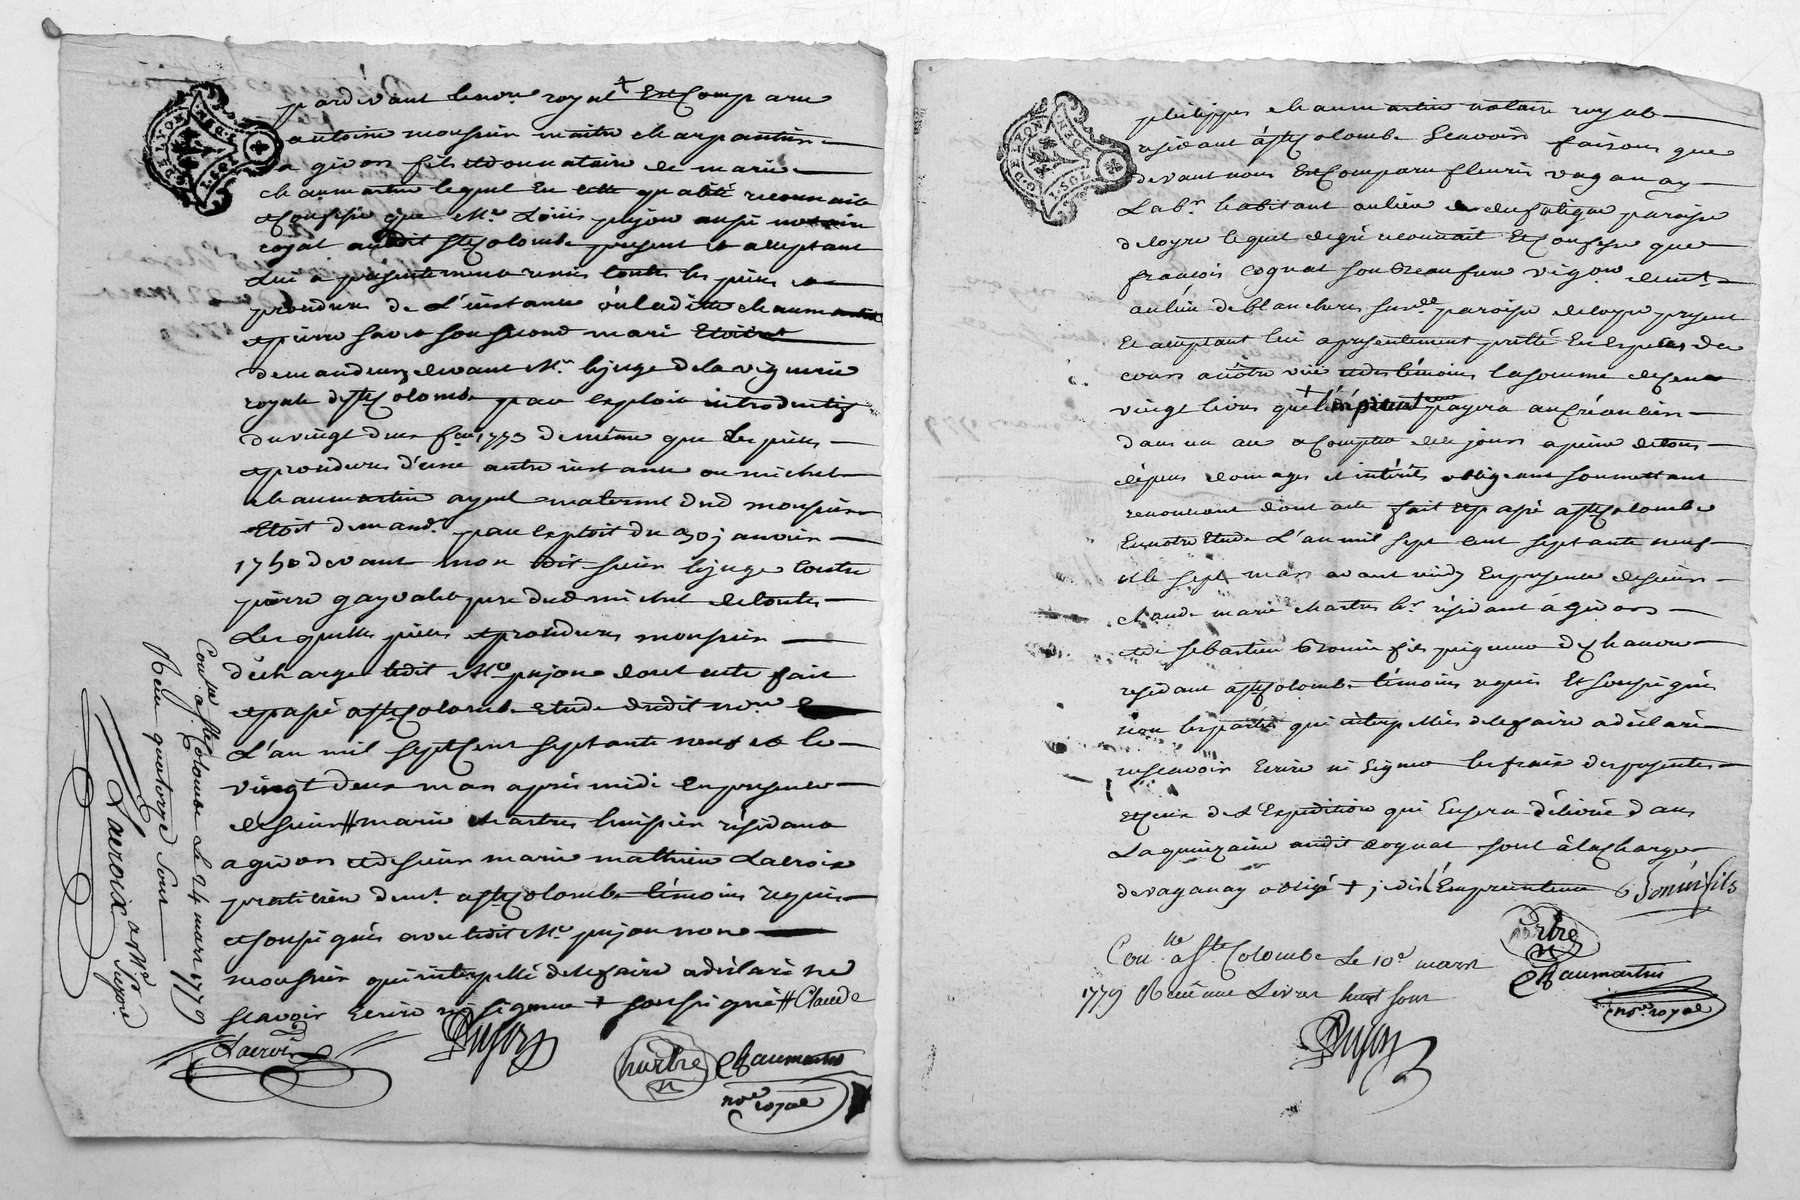 pardevant le no.re royal + Est Comparu
antoine monsieur maitre charpantier
a givors fils et donnataire de marie
chaumartin lequel En cette qualité reconnait
et Confesse que Me. Loüis pujon aussi notaire
royal audit Ste Colombe present et acceptant
Lui a presentement remis toutes les pieces et
procedures de L'instance où ladite chaumartin
et pierre son second mari Etoient
demandeurs devant Mr. le juge de la viguerie
royale de Ste Colombe par exploit introductif
du vingt deux 1773 de même que les pieces
et procedures d'une autre instance ou michel
chaumartin ayeul maternel dud monsieur
Etoit demandr. par exploit du janvier
devant mon dit sieur le juge contre
pierre pere dud michel de toutes
Lesquelles pieces et procedures monsieur
décharge ledit Me. pujon dont acte fait
et passé a Ste Colombe Etude dudit nore
L'an mil sept Cent septante neuf et le
vingt deux mars après midi En presence
de sieur # marie chartre huissier résidant
a givors et de sieur marie mathieu Lacroix
praticien demt. a Ste Colombe témoins requis
et soussignés avec ledit Me. pujon non
monsieur qui interpellé de le faire a déclaré ne
scavoir Ecrire ni signer + soussigné # Claude
Lacroix
Pujon
hartre
Chaumartin
nore royal
Conlle a Ste Colombe Le 24 mars 1779
Reçu quatorze sous
Lacroix
philippe chaumartin notaire royal
résidant à Ste Colombe Scavoir faisons que
devant nous Est Comparu fleuris vaganay
Labr. habitant au lieu de paroisse
de loyre lequel de gré reconnait Et Confesse que
francois Cognat son Beaufrere vigon demt.
au lieu de blancheres susde paroisse de loyre present
Et acceptant lui a presentement pretté En Especes de
cours a nôtre vüe et des témoins la somme de cent
vingt livres que + l'Emprunteur payera au Créancier
dans un an a Compter de ce jour a peine de tous
dépens domages et intérêts obligeant soumettant
renoncant dont acte fait Et passé a Ste Colombe
En notre Etude L'an mil sept cent septante neuf
et le sept mars avant midy En presence de sieur
claude marie chartre hr. résidant à givors
et de sébastien Bonin fils peigneur de chanvre
residant a Ste Colombe témoins requis Et soussignés
non les parties qui interpellées de le faire a déclaré
ne scavoir Ecrire ni signer les frais des presentes
et ceux de L'Expedition qui En sera délivré dans
La quinzaine audit Cognat sont à la charge
de vaganay obligé + je dis L'Emprunteur
Bonin fils
hartre
Chaumartin
nore. royal
Conlle a Ste. Colombe Le 10e mars
1779 Reçu une Livre huit sous
Pujon